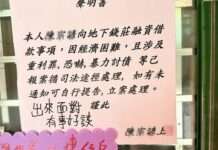 聲明書
本人陳宗鐿向地下錢莊融資借
款事項，因經濟困難，且涉及
重利罪，恐嚇，暴力討債 等 已
報案循司法途徑處理，如有未
通知可自行提告，立案處理。
謹此
出來面對
有事好談
陳宗鐿上